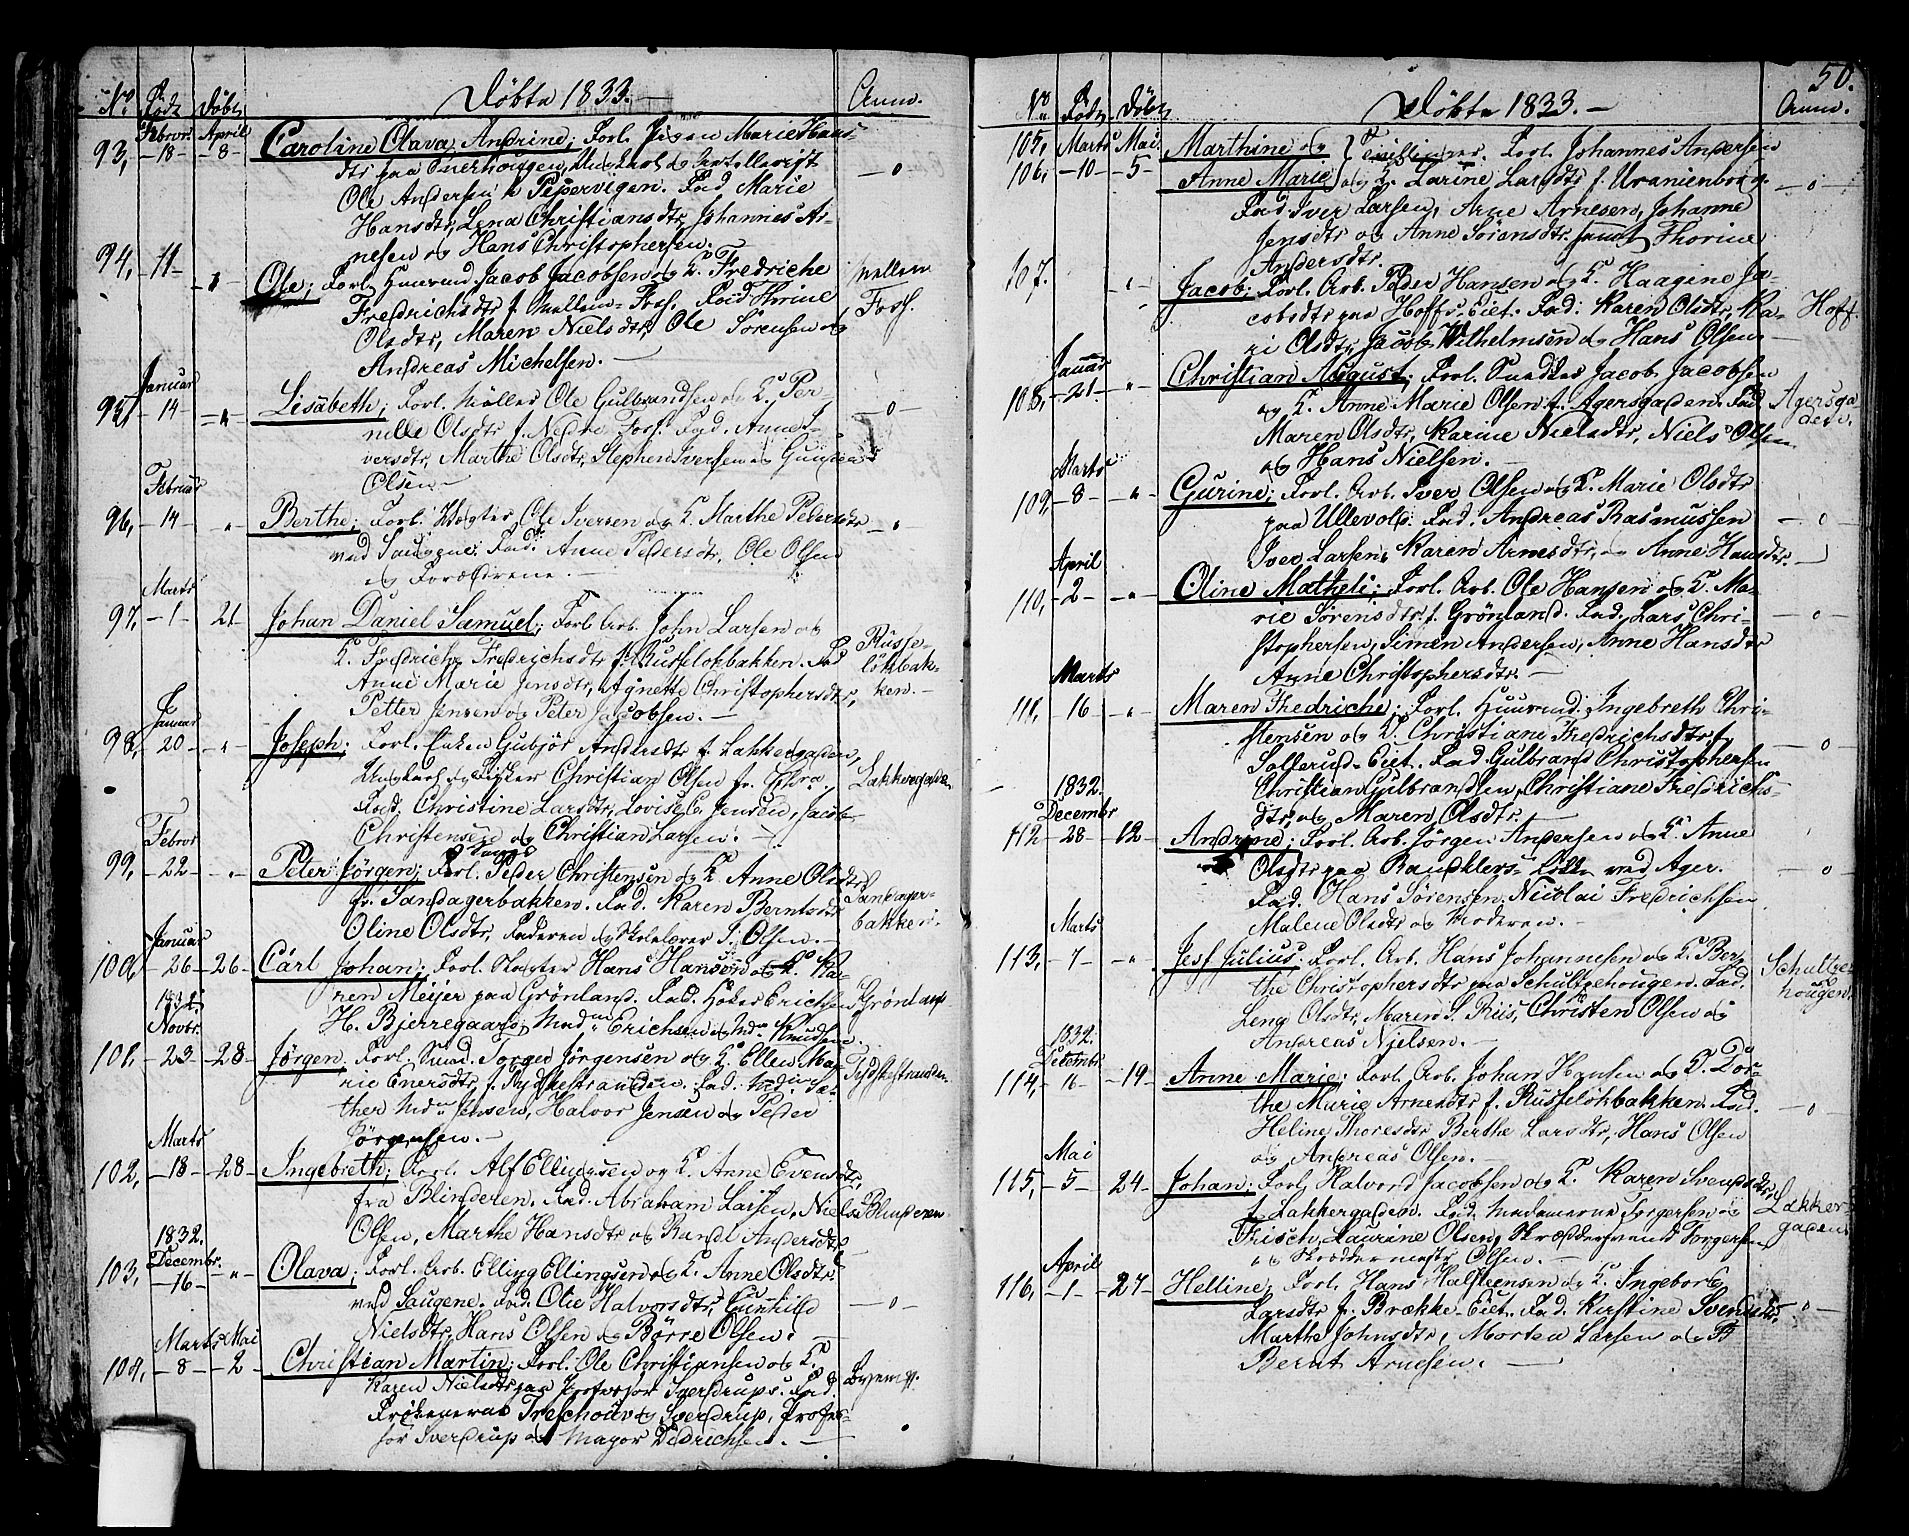 No Födt Döbt Döbte 1833.— Anm.
Febrvr. April
93, —18— —8— Caroline Olava Andrine; Forl. Pigen Marie Hans-
dtr paa Enerhougen,
Ole Andersen i Pepervigen. Fad. Marie
Hansdtr, Lena Christiansdtr, Johannes Ar-
nesen og Hans Christophersen.
94, —11— Ole; Forl. Huusmd. Jacob Jacobsen og K. Fredriche
Fredrichsdtr f. Mellem-Foss. Fad. Thrine
Olsdtr, Maren Nielsdtr, Ole Sörensen og
Andreas Michelsen.—
Mellem
Foss.
Januar
95, —14— —"— Lisabeth; Forl. Möller Ole Gulbrandsen og K. Per-
nille Olsdtr f. Nedre Foss. Fad. Anne I-
versdtr, Marthe Olsdtr, Stephen Iversen og
Olsen.—
—o—
Februar
96, —14— " Berthe; Forl. Vægter Ole Iversen og K. Marthe Pedersdtr
ved Saugene. Fad. Anne Pedersdtr, Ole Olsen
og Forældrene.—
Marts
97, —1— 21 Johan Daniel Samuel; Forl. Arb. John Larsen og
K. Fredriche Fredrichsdtr f. Russelökbakken. Fad
Anne Marie Jensdtr, Agnette Christophersdtr,
Petter Jensen og Peter Jacobsen.—
Russe-
lökbak-
ken.—
Januar
98, —20— —"— Joseph; Forl. Enken Gubjör Andersdtr f. Lakkegaden,
Ungkarl og Fisker Christian Olsen
Fad. Christine Larsdtr, Lovise C. Jensen, Jacob
Christensen og Christian Larsen.—
Lakkegaden
Febrvr
99, —22— " Peter Jörgen; Forl. Peder Christensen og K. Anne Olsdtr
fr. Sandagerbakken. Fad. Karen Berntsdtr
Oline Olsdtr, Faderen og Skolelærer J. Olsen.—
Sandager-
bakken.
Januar
100, —26— —26— Carl Johan; Forl. Hans Hansen og K. Ka-
ren Meijer paa Grönland. Fad. Höker Erichsen
H. Bjerregaard, Madm Erichsen og Mdm Knudsen.
Grönland
1832.
Novbr.
101, —23— —28— Jörgen; Forl. Smed Torger Jörgensen og K. Ellen Ma-
rie Enersdtr, f. Tydskestranden. Fad.
ther Mdm Jensen, Halvor Jensen og Peder
Jörgensen.—
Tydskestranden
Marts
102, —18— —28— Ingebreth; Forl. Alf Ellingsen og K. Anne Evensdtr,
fra Blinderen. Fad. Abraham Larsen, Niels
Olsen, Marthe Hansdtr og Randi Andersdtr
Blinderen
1832.
Decembr.
103, —16— —"— Olava; Forl. Arb. Elling Ellingsen og K. Anne Olsdtr
ved Saugene. Fad. Olie Halvorsdtr, Gunhild
Nielsdtr, Hans Olsen og Börre Olsen.—
—o—
Marts Mai
104, —8— —2— Christian Martin; Forl. Ole Christiansen og K.
Karen Nielsdtr paa Professor Sverdrups. Fad.
Frökenerne Treschouw og Sverdrup, Profes-
sor Sverdrup og Mayor Didrichsen.—
50.
No Födt Döbt Döbte 1833.— Anm.
105, Marts Mai Marthine og } Tvillinger. Forl. Johannes Andersen
106, —10— —5— Anne Marie } og K. Larine Larsdtr f. Uranienborg.
Fad. Iver Larsen, Arne Arnesen, Johanne
Jensdtr og Anne Sörensdtr samt Thorine
Andersdtr.
—o—
107. Jacob; Forl. Arb. Peder Hansen og K. Haagine Ja-
cobsdtr paa Hoffs-Eiet. Fad: Karen Olsdtr, Ka-
ri Olsdtr, Jacob Wilhelmsen og Hans Olsen.—
Hoff.
Januar
108, —21— " Christian August; Forl. Snedker Jacob Jacobsen
og K. Anne Marie Olsen f. Agersgaden. Fad
Maren Olsdtr, Karine Nielsdtr, Niels Olsen
og Hans Nielsen.—
Agersga
den.
Marts
109, —8— —"— Gurine; Forl. Arb. Iver Olsen og K. Marie Olsdtr
paa Ullevold. Fad. Andreas Rasmussen
Iver Larsen, Karen Arnesdtr, og Anne Hansdtr.
—o—
April
110, —2— —"— Oline Matheli; Forl. Arb. Ole Hansen og K. Ma-
rie Sörensdtr f. Grönland. Fad. Lars Chri-
stophersen, Simen Andersen, Anne Hansdtr
Anne Christophersdtr.—
—o—
Marts
111, —16— —"— Maren Fredriche; Forl. Huusmd. Ingebreth Chri-
stensen og K. Christiane Fredrichsdtr f.
Eiet. Fad. Gulbrand Christophersen
Christian Gulbrandsen, Christiane Fredrichs-
dtr og Maren Olsdtr.—
—o—
1832.
Decembr
112 —28— —12— Andrine; Forl. Arb. Jörgen Andersen og K. Anne
Olsdtr paa ved Ager.
Fad. Hans Sörensen, Nicolai Fredrichsen
Malene Olsdtr og Moderen.—
—o
Marts
113, —7— —"— Jess Julius. Forl. Arb. Hans Johannesen og K. Ber-
the Christophersdtr paa Schultzehougen. Fad.
Lena Olsdtr, Maren S. Riis, Christen Olsen og
Andreas Nielsen.—
Schultze-
hougen.
1832.
Decembr.
114, —16— —19— Anne Marie; Forl. Arb. Johan Hansen og K. Dor-
the Marie Arnesdtr f. Russelökbakken. Fad.
Heline Thoresdtr Berthe Larsdtr, Hans Olsen
og Andreas Olsen.—
—o
Mai
115, —5— —24— Johan; Forl. Halvord Jacobsen og K. Karen Svendsdtr
f. Lakkergaden. Fad. Madamerne Torgersen og
Frisch, Laurine Olsen, Skræddersvend Torgersen
og Skræddermester Olsen.—
Lakker-
gaden
April
116, —1— —27— Helline; Forl. Hans Halstensen og K. Ingeborg
Larsdtr fr. Brække-Eiet. Fad. Kirstine Svendsdtr,
Marthe Johnsdtr, Morten Larsen og
Bernt Arnesen.—
—o—